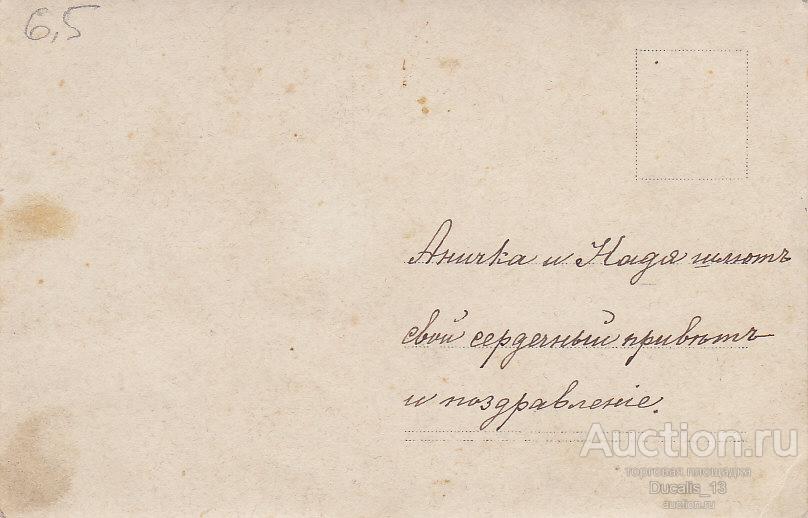 6,5
Аничка и Надя шлютъ
свой сердечный привѣтъ
и поздравленіе.
Auction.ru
торговая площадка
Ducalis_13
auction.ru